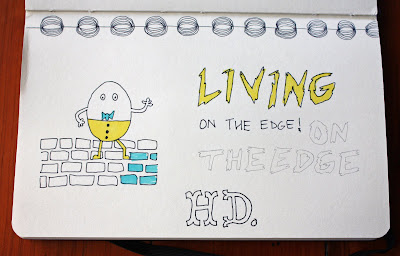 LIVING
ON THE EDGE!
ON
THE EDGE
H.D.